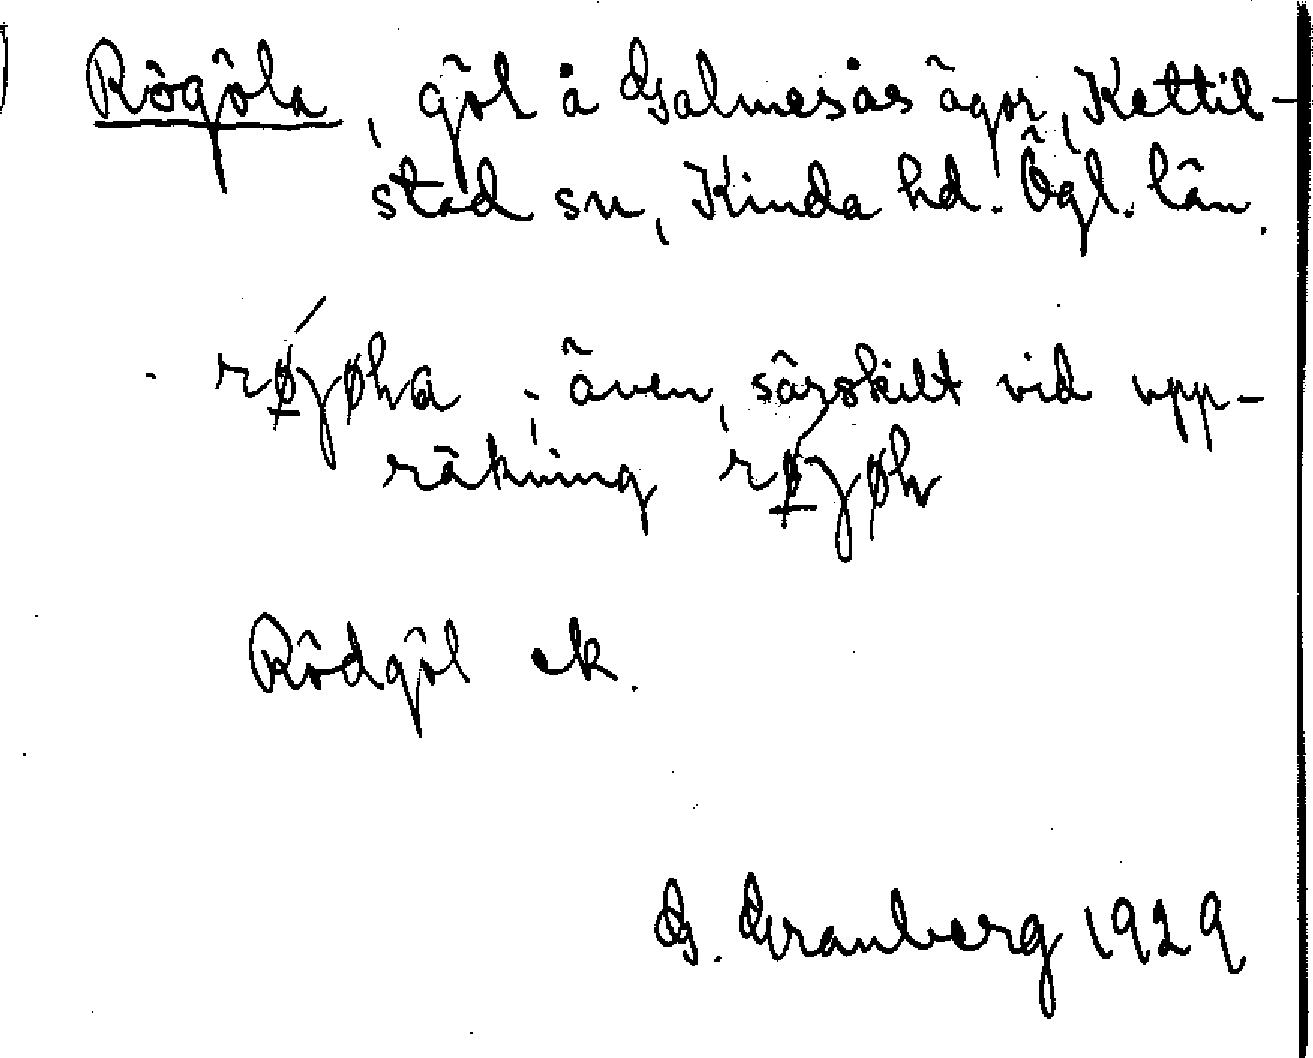 Rögöla, göl å Galmesås ägor, Kettil-
stad sn, Kinda hd. Ögl. län.
även, särskilt vid upp-
räkning
Rödgöl ek.
G. Granberg 1929